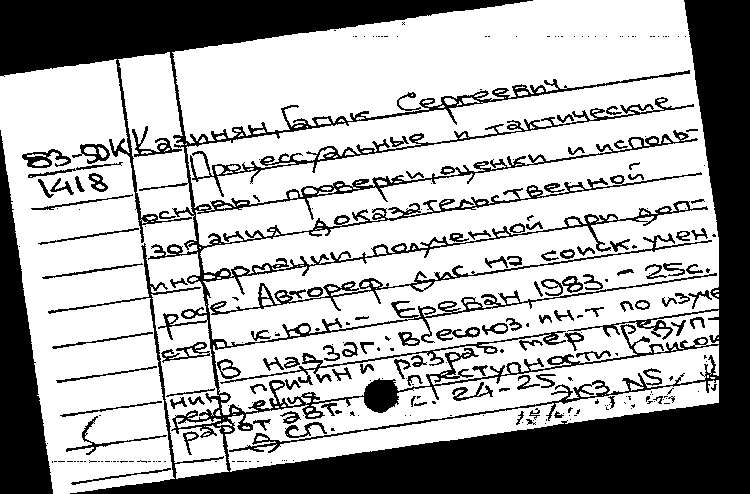 83-50К Казинян, Гагик Сергеевич.
1418 Процессуальные и тактические
основы проверки, оценки и исполь-
зования доказательственной
информации, полученной при доп-
росе: Автореф. Дис. на соиск. учен.
степ. к.ю.н. - Ереван, 1983. - 25с.
В надзаг.: Всесоюз. ин-т по изуче
нию причин и разраб. мер предуп-
реждения преступности. Список
работ авт.: с. 24-25.
ДСП. Экз. №